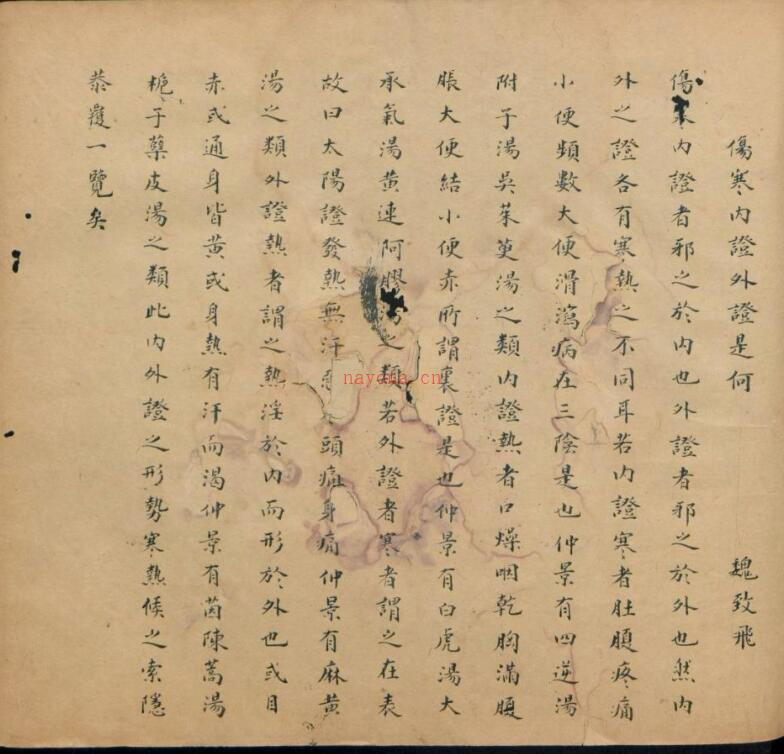 傷寒內證外證是何 魏致飛
傷內證者邪之於內也外證者邪之於外也然內
外之證各有寒熱之不同耳若內證寒者肚腹疼痛
小便頻數大便滑瀉病在三陰是也仲景有四逆湯
附子湯吳茱萸湯之類內證熱者口燥咽乾胸滿腹
脹大便結小便赤所謂裏證是也仲景有白虎湯大
承氣湯黃連阿膠湯之類若外證者寒者謂之在表
故曰太陽證發熱無汗頭痛身痛仲景有麻黃
湯之類外證熱者謂之熱淫於內而形於外也或目
赤或通身皆黃或身熱有汗而渴仲景有茵陳蒿湯
梔子蘗皮湯之類此內外證之形勢寒熱候之索隱
恭覆一覽矣
nayona.cn